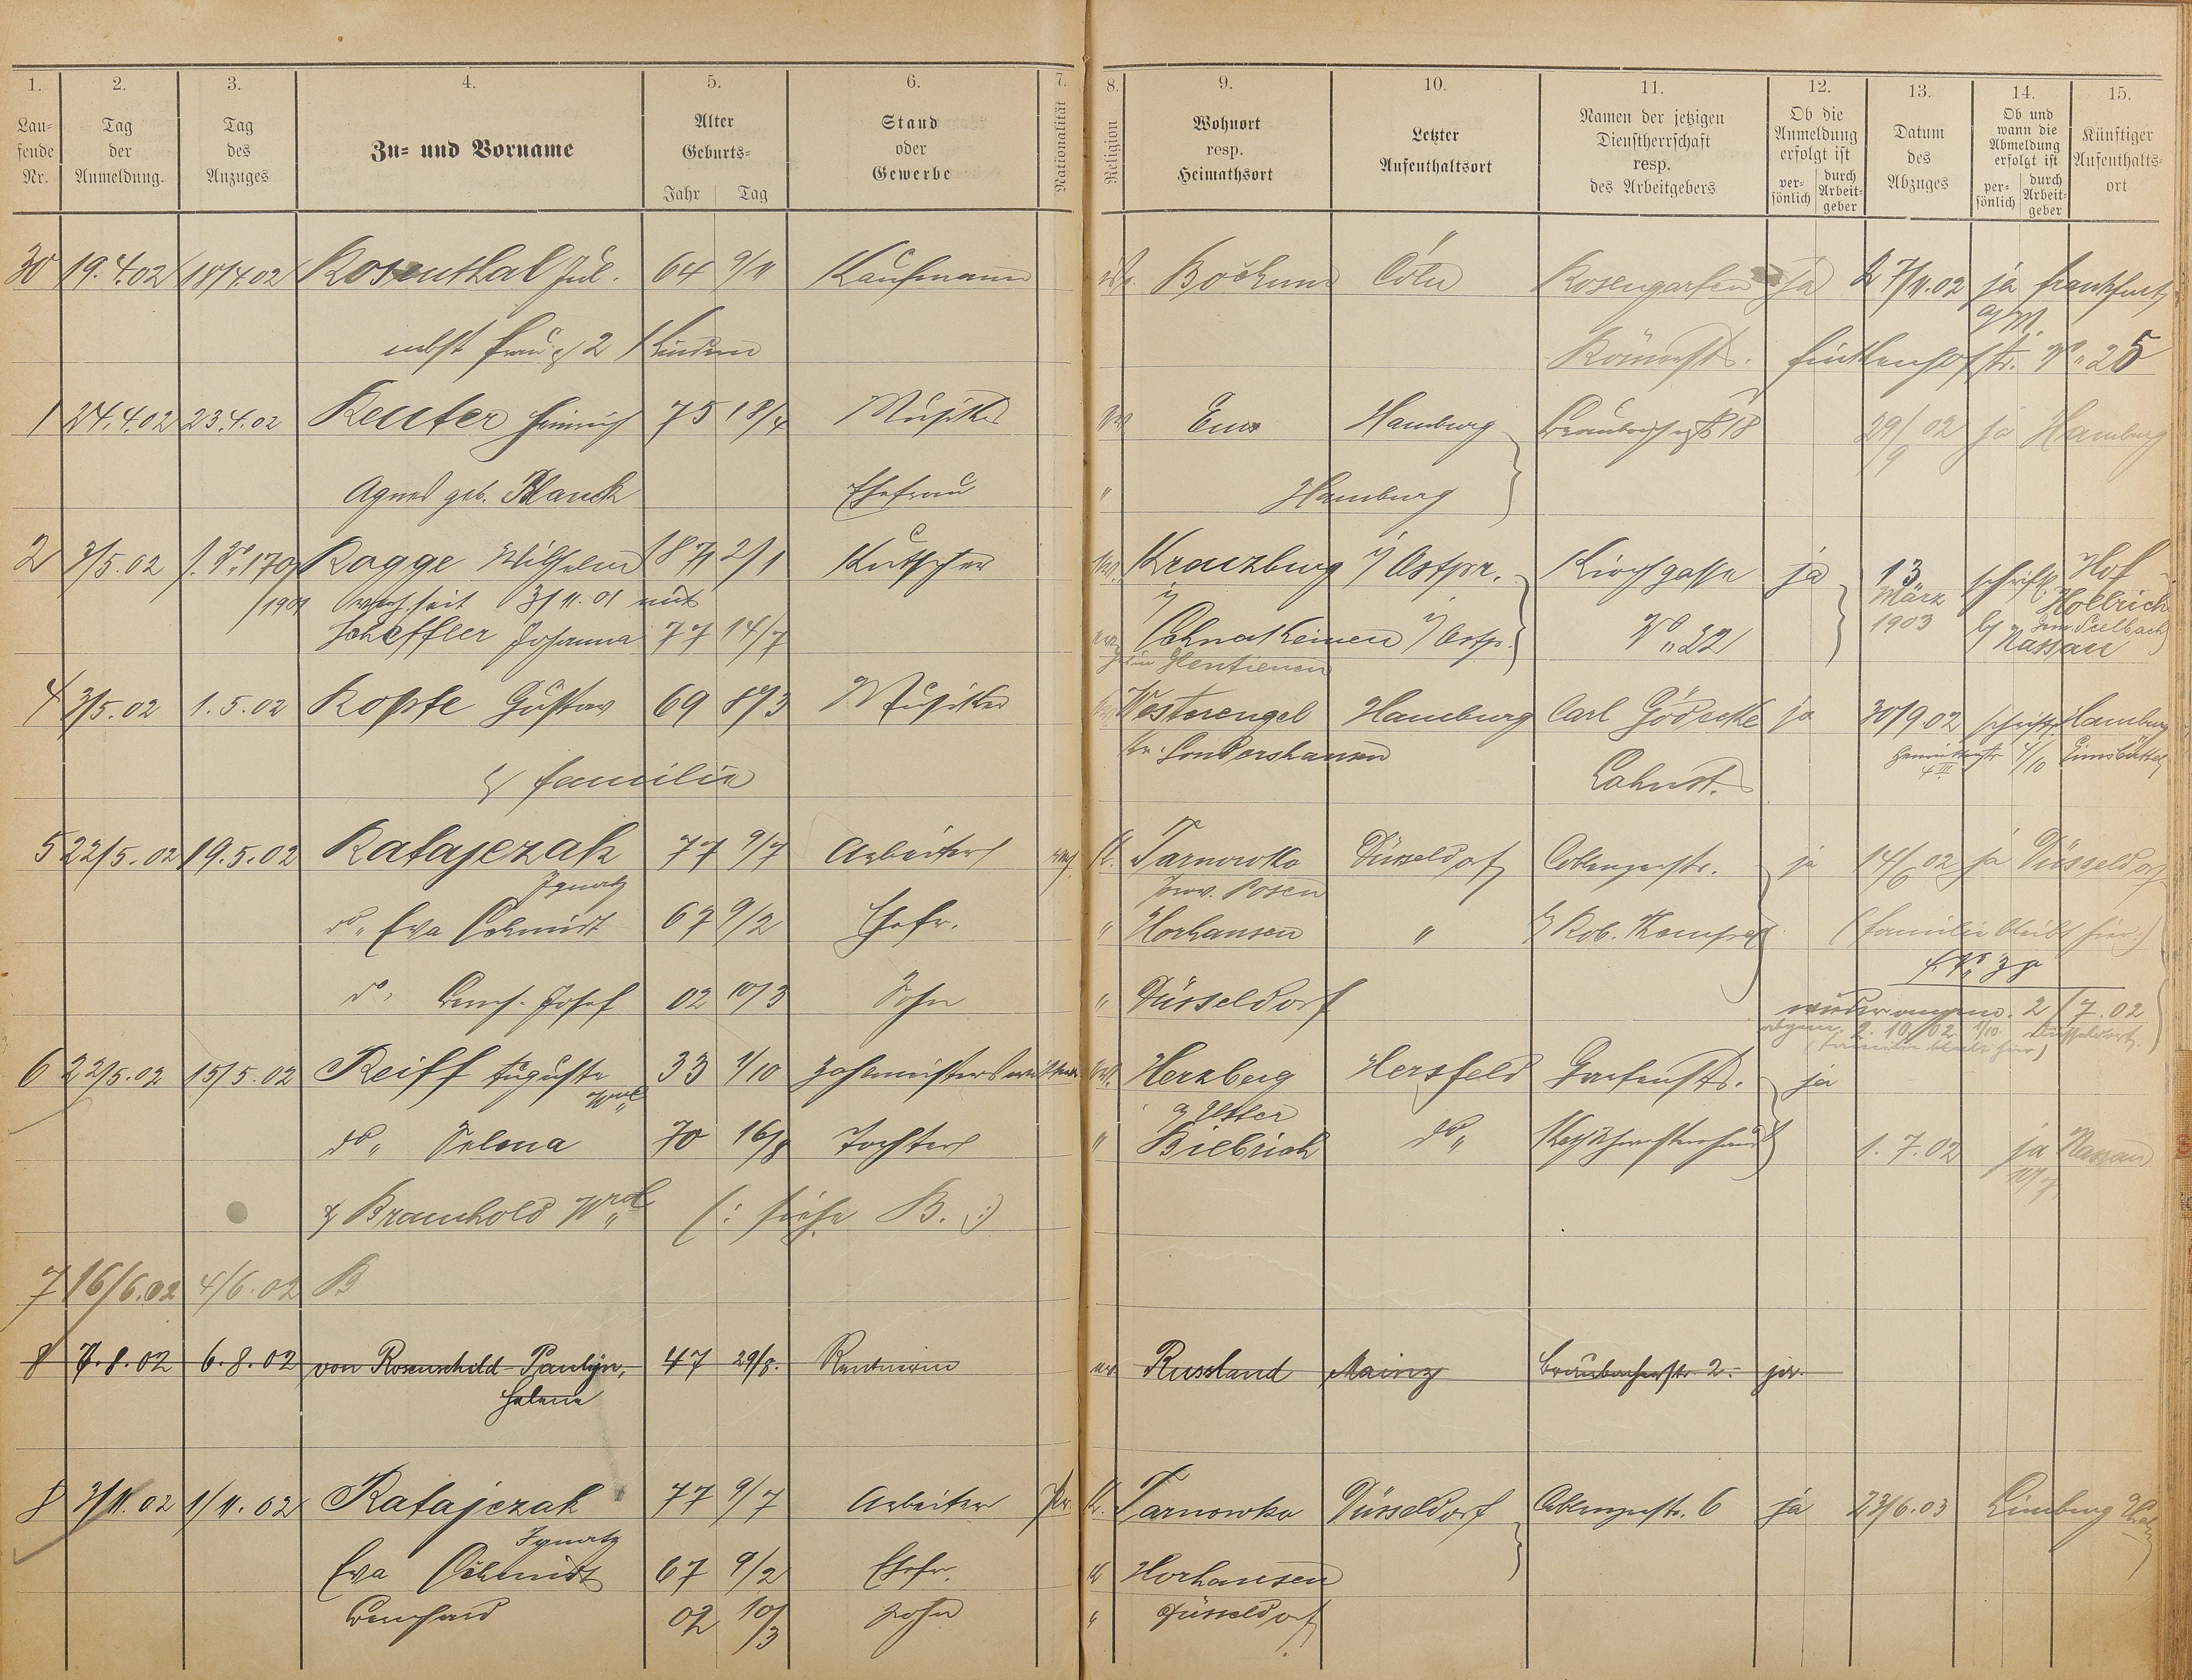 1. 2. 3. 4. 5. 6. 7. 8. 9. 10. 11. 12. 13. 14. 15.
Lau-
fende
Nr.
Tag
der
Anmeldung.
Tag
des
Anzuges
Zu- und Vorname
Alter
Geburts-
Jahr Tag
Stand
oder
Gewerbe
Nationalität
Religion
Wohnort
resp.
Heimathsort
Letzter
Aufenthaltsort
Namen der jetzigen
Dienstherrschaft
resp.
des Arbeitgebers
Ob die
Anmeldung
erfolgt ist
per-
sönlich
durch
Arbeit-
geber
Datum
des
Abzuges
Ob und
wann die
Abmeldung
erfolgt ist
per-
sönlich
durch
Arbeit-
geber
Künftiger
Aufenthalts-
ort
30 19.4.02 18/4.02 Rosenthal Jul. 64 9/11 Kaufmann Bochum Cöln Rosengarten ja 27/11.02 ja Frankfurt
a/M.
nebst Frau & 2 Kindern Römerstr. Finkenhofstr. No. 25
1 24.4.02 23.4.02 Reuter Heinrich 75 18/4 Musiker Ems Hamburg 18 29/9 02 ja Hamburg
Agnes geb. Blanck Ehefrau " Hamburg
2 3/5.02 f. No. 170/1901 Ragge Wilhelm 1871 2/1 Kutscher Kreuzburg i/ Ostpr. Kirchgasse ja 13 März 1903 schriftl. Hof
verh. seit 3/11.01 mit Hollrich
Scheffler Johanna 77 14/7 i/ Ostp. No. 22 Gem. Seelbach
b/ Nassau
4 3/5.02 1.5.02 Kopfe Gustav 69 8/3 Musiker Westerengel Hamburg Carl Gödecke ja 30/9.02 schriftl. Hamburg
Kr. Sondershausen 4/10 Eimsbüttel
& Familie Lahnst.
5 22/5.02 19.5.02 Ratajczak 77 9/7 Arbeiter K. Tarnowko Düsseldorf Coblenzerstr. ja 14/6 02 ja Düsseldorf
Ignatz Prov. Posen
do. Eva Schmidt 67 9/2 Ehefr. " Horhausen " b/ Rob. Kempf (Familie bleibt hier)
f. No. 38
do. Josef 02 10/3 Sohn " Düsseldorf wieder angem. 2/7.02
abgem. 2.10/02 1/10. Düsseldorf.
(Familie bleibt hier)
6 22/5.02 15/5.02 Reiff Auguste 33 1/10 Herzberg Hersfeld Gartenstr. ja
Wwe a/ Elster
do. Selena 70 16/8 Tochter " Biebrich do. 1.7.02 ja Nassau
10/7
& Bramhold (: siehe B. :)
7 16/6.02 4/6.02 B
8 7.8.02 6.8.02 von Rosenschild-Paulyn, 47 29/8. Rentnerin Russland Mainz Braubacherstr. 2. ja.
Helene
8 3/11.02 1/11.02 Ratajczak 77 9/7 Arbeiter Pr. K. Tarnowko Düsseldorf Coblenzerstr. 6 ja 23/6.03 Limburg
Ignatz
Eva Schmidt 67 9/2 Ehefr. K Horhausen
Bernhard 02 10/3 Sohn " Düsseldorf